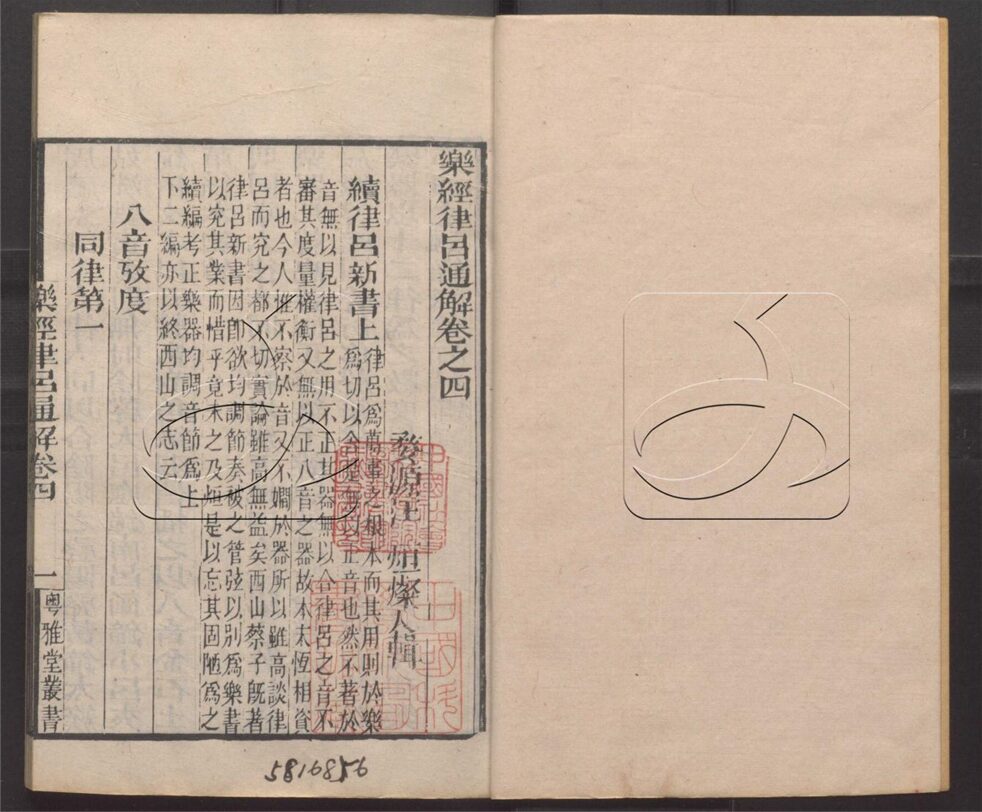 樂經律呂通解卷之四
婺源汪 烜燦人輯
續律呂新書上
律呂爲萬事之根本而其用則於樂
爲切以今無以正音也然不著於
音無以見律呂之用不正其器無以合律呂之音不
審其度量權衡又無以正八音之器故本末恆相資
者也今人惟不察於音又不嫺於器所以雖高談律
呂而究之都不切實論雖高無益矣西山蔡子旣著
律呂新書因卽欲均調節奏被之管弦以別爲樂書
以究其業而惜乎竟未之及烜是以忘其固陋爲之
續編考正樂器均調音節爲上
下二編亦以終西山之志云
八音攷度
同律第一
樂經律呂通解卷四
一
粤雅堂叢書
5816856